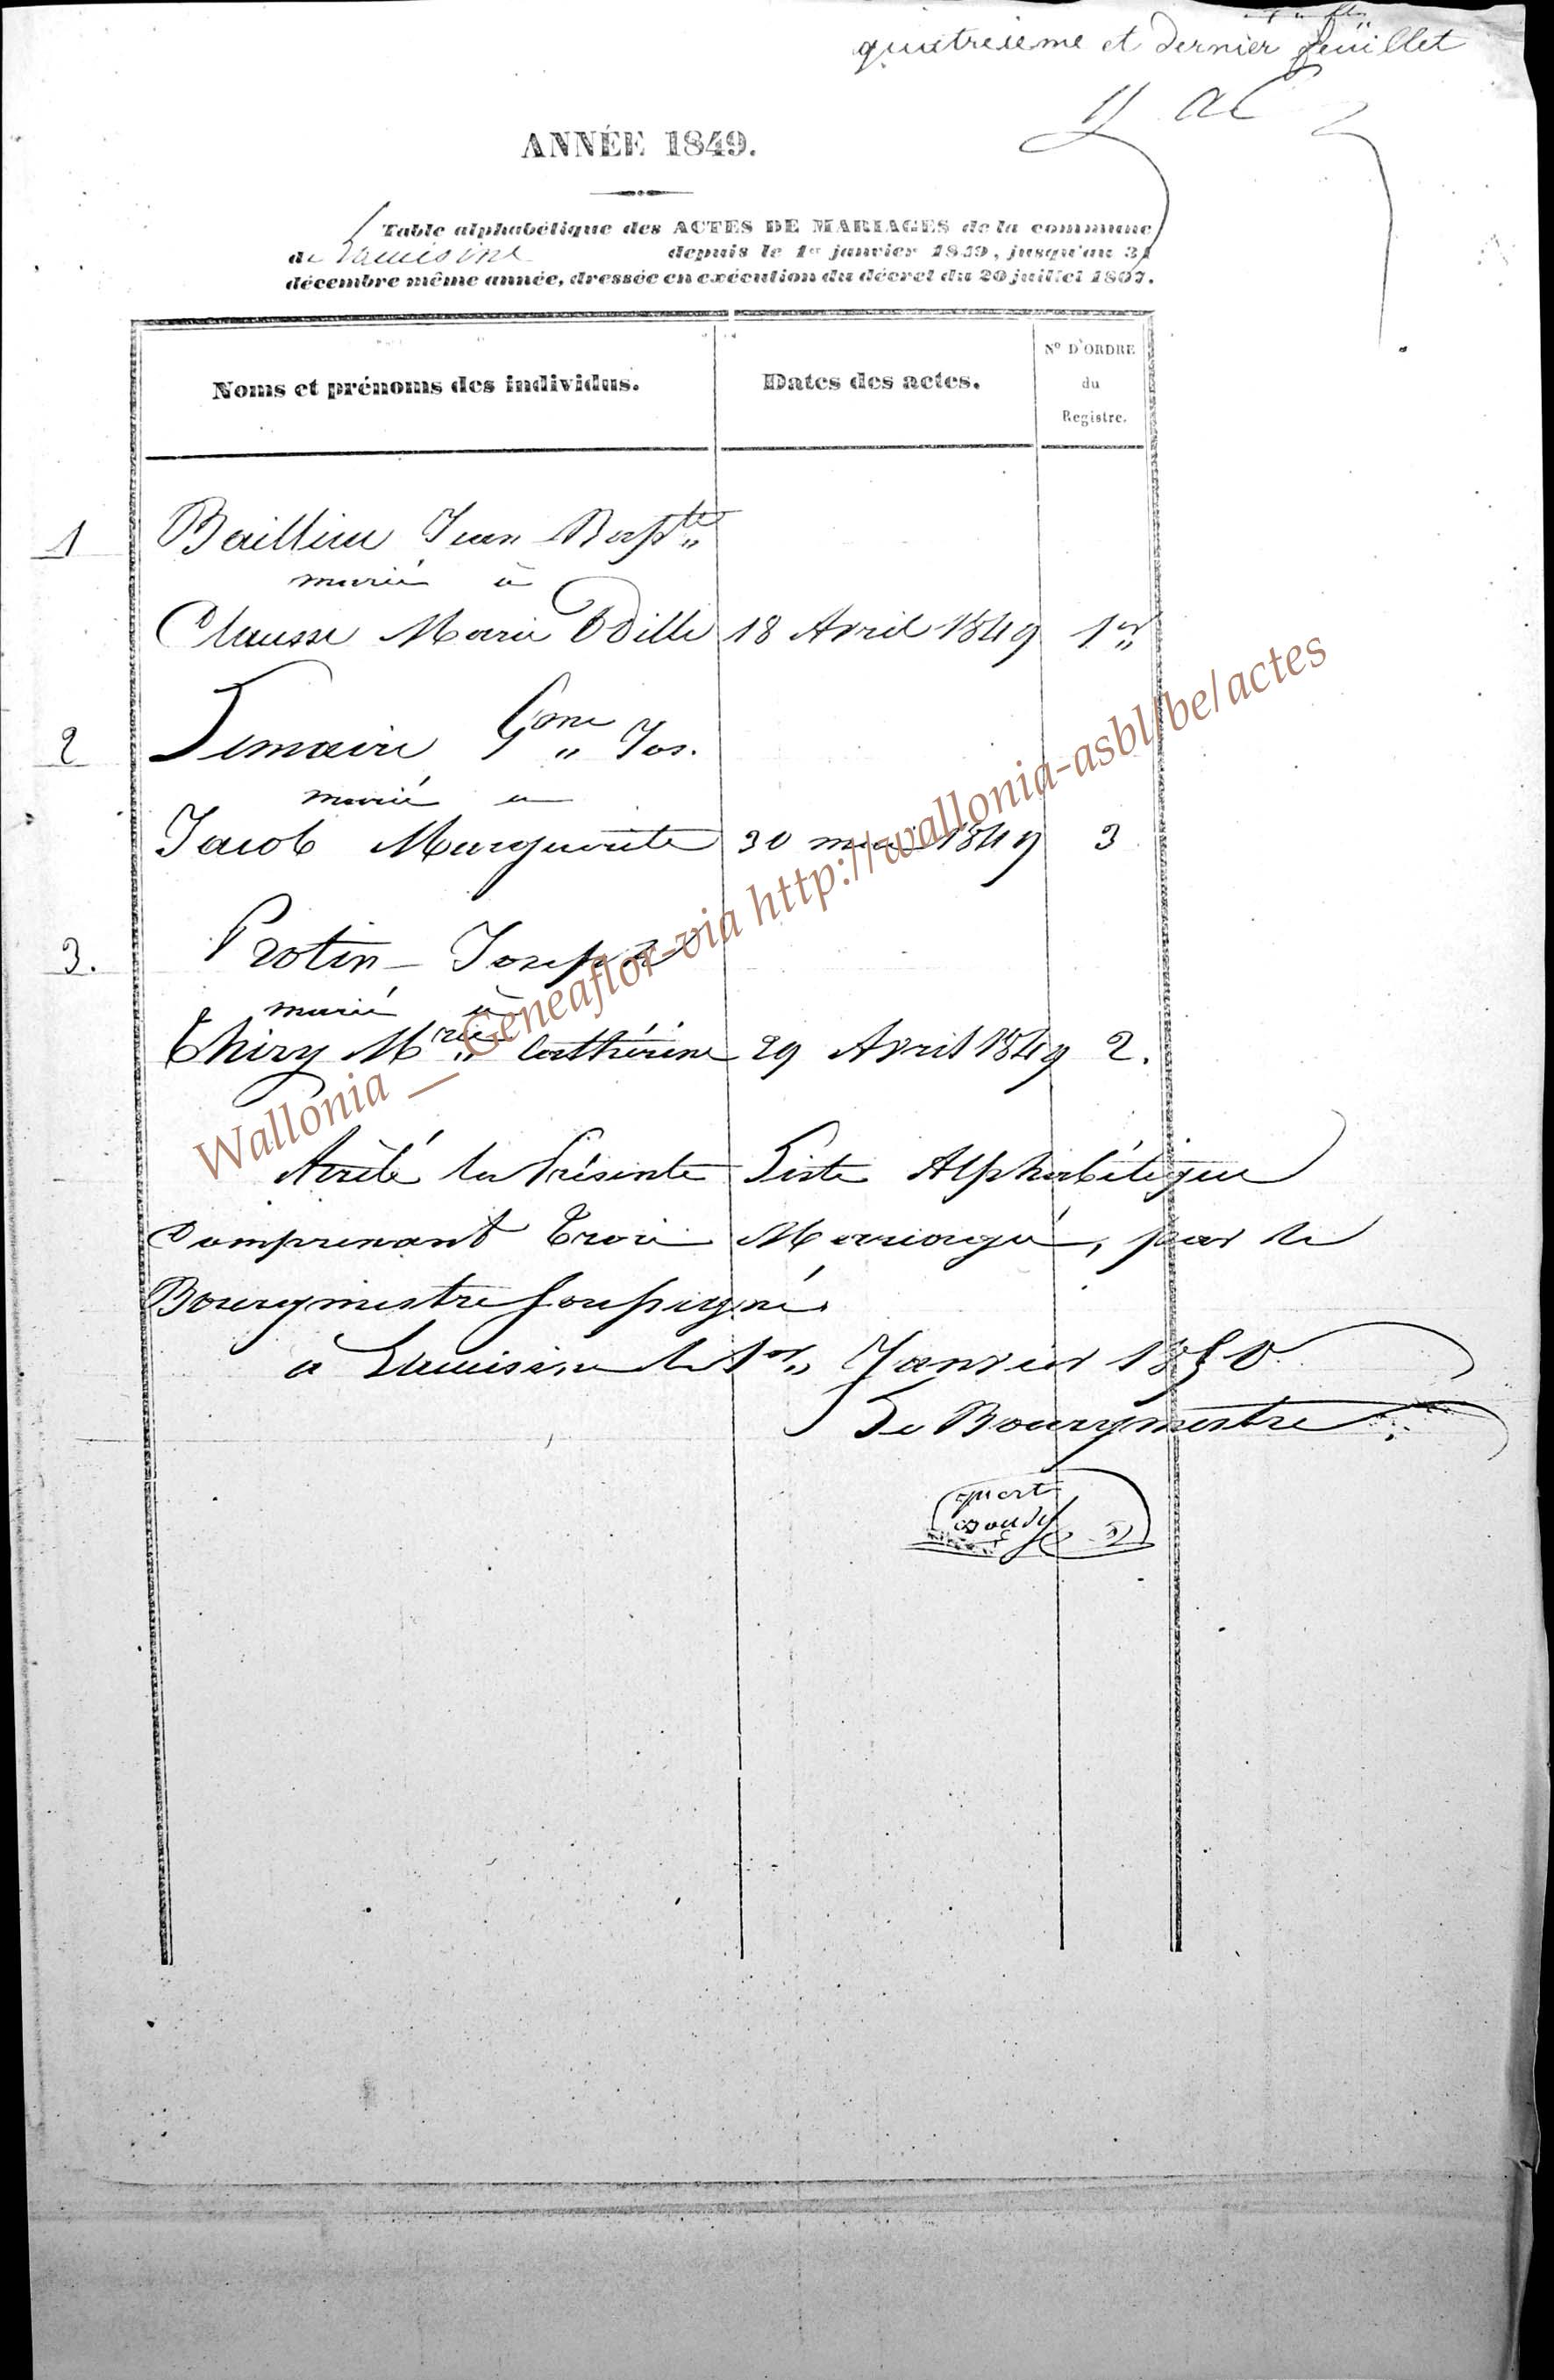 quatreieme et dernier feuillet
ANNÉE 1849.
Table alphabétique des ACTES DE MARIAGES de la commune
de Lacuisine depuis le 1er janvier 1849, jusqu'au 31
décembre même année, dressée en exécution du décret du 20 juillet 1807.
Noms et prénoms des individus. Dates des actes. No D'ORDRE
du
Registre.
1 Baillieu Jean Bapte
marié à
Clausse Marie Odille 18 Avril 1849 1er
2 Lemaire Gme Jos.
marié a
Jacob Marguerite 30 mai 1849 3
3. Protin Joseph
marié à
Thiry Mrie Cathérine 29 Avril 1849 2.
Arrêté la Présente Liste Alphabétique
Comprenant Trois Mariages, par le
Bourgmestre soussigné
a Lacuisine le 1er Janvier 1850
Le Bourgmestre
Wallonia _ Geneaflor-via http://wallonia-asbl/be/actes